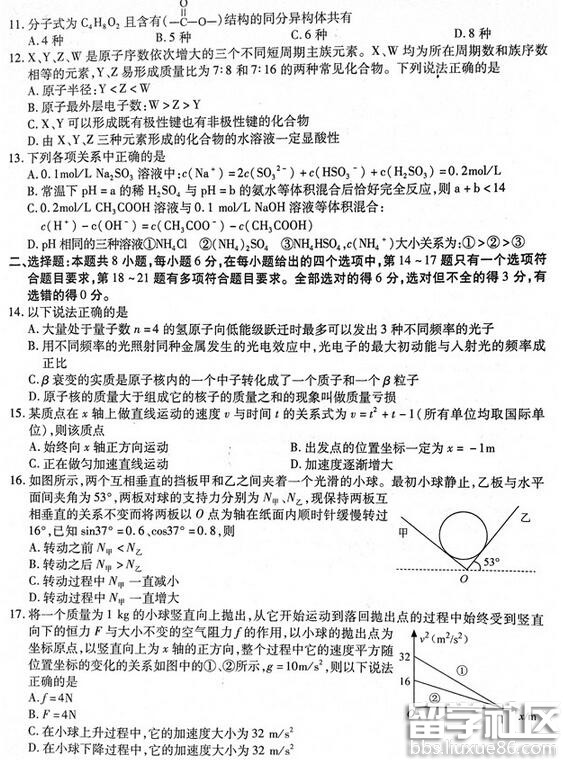 11.分子式为C₄H₈O₂且含有(—C(=O)—O—)结构的同分异构体共有
A.4种 B.5种 C.6种 D.8种
12.X、Y、Z、W是原子序数依次增大的三个不同短周期主族元素。X、W均为所在周期数和族序数
相等的元素,Y、Z易形成质量比为7:8和7:16的两种常见化合物。下列说法正确的是
A.原子半径:Y<Z<W
B.原子最外层电子数:W>Z>Y
C.X、Y可以形成既有极性键也有非极性键的化合物
D.由X、Y、Z三种元素形成的化合物的水溶液一定显酸性
13.下列各项关系中正确的是
A.0.1mol/L Na₂SO₃溶液中:c(Na⁺)=2c(SO₃²⁻)+c(HSO₃⁻)+c(H₂SO₃)=0.2mol/L
B.常温下pH=a的稀H₂SO₄与pH=b的氨水等体积混合后恰好完全反应,则a+b<14
C.0.2mol/L CH₃COOH溶液与0.1 mol/L NaOH溶液等体积混合:
c(H⁺)-c(OH⁻)=c(CH₃COO⁻)-c(CH₃COOH)
D.pH相同的三种溶液①NH₄Cl ②(NH₄)₂SO₄ ③NH₄HSO₄,c(NH₄⁺)大小关系为:①>②>③
二、选择题:本题共8小题,每小题6分,在每小题给出的四个选项中,第14~17题只有一个选项符
合题目要求,第18~21题有多项符合题目要求。全部选对的得6分,选对但不全的得3分,有
选错的得0分。
14.以下说法正确的是
A.大量处于量子数n=4的氢原子向低能级跃迁时最多可以发出3种不同频率的光子
B.用不同频率的光照射同种金属发生的光电效应中,光电子的最大初动能与入射光的频率成
正比
C.β衰变的实质是原子核内的一个中子转化成了一个质子和一个β粒子
D.原子核的质量大于组成它的核子的质量之和的现象叫做质量亏损
15.某质点在x轴上做直线运动的速度v与时间t的关系式为v=t²+t-1(所有单位均取国际单
位),则该质点
A.始终向x轴正方向运动 B.出发点的位置坐标一定为x=-1m
C.正在做匀加速直线运动 D.加速度逐渐增大
16.如图所示,两个互相垂直的挡板甲和乙之间夹着一个光滑的小球。最初小球静止,乙板与水平
面间夹角为53°,两板对球的支持力分别为N甲、N乙,现保持两板互
相垂直的关系不变而将两板以O点为轴在纸面内顺时针缓慢转过
16°,已知sin37°=0.6、cos37°=0.8,则
A.转动之前N甲<N乙
B.转动之后N甲>N乙
C.转动过程中N甲一直减小
D.转动过程中N甲一直增大
甲 乙
53°
O
17.将一个质量为1 kg的小球竖直向上抛出,从它开始运动到落回抛出点的过程中始终受到竖直
向下的恒力F与大小不变的空气阻力f的作用,以小球的抛出点为
坐标原点,以竖直向上为x轴的正方向,整个过程中它的速度平方随
位置坐标的变化的关系如图中的①、②所示,g=10m/s²,则以下说法
正确的是
A.f=4N
B.F=4N
C.在小球上升过程中,它的加速度大小为32 m/s²
D.在小球下降过程中,它的加速度大小为32 m/s²
v²(m²/s²)
32
①
16
②
留学社区
bbs.liuxue86.com